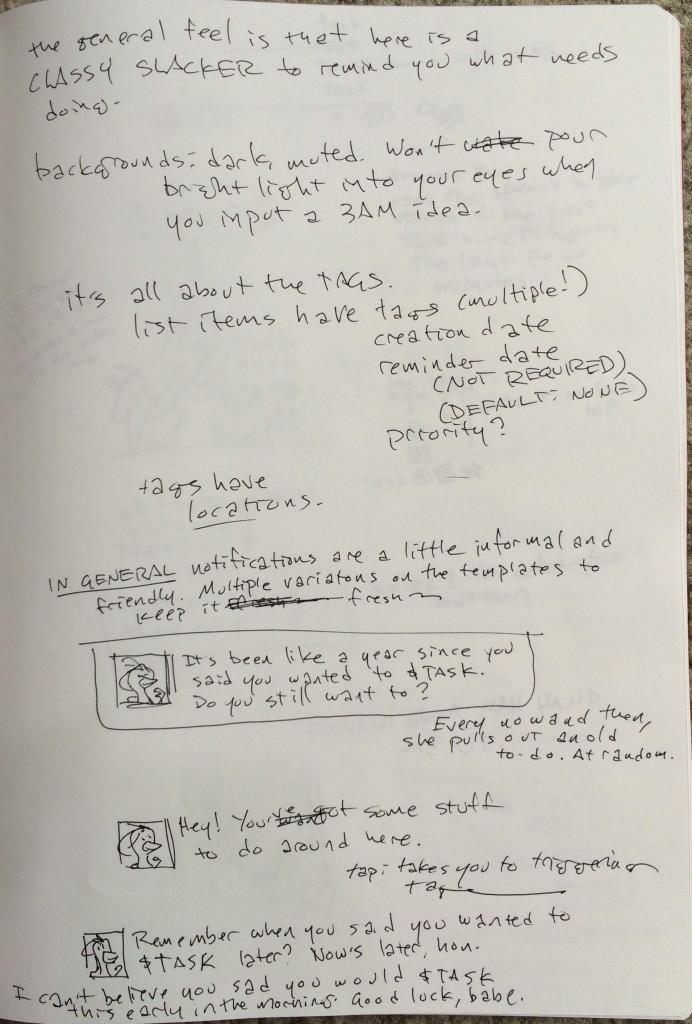 the general feel is that here is a
CLASSY SLACKER to remind you what needs
doing.
backgrounds: dark, muted. Won't pour
bright light into your eyes when
you input a 3AM idea.
it's all about the TAGS.
list items have tags (multiple!)
creation date
reminder date
(NOT REQUIRED)
(DEFAULT: NONE)
priority?
tags have
locations.
IN GENERAL notifications are a little informal and
friendly. Multiple variatons on the templates to
keep it fresh
It's been like a year since you
said you wanted to $TASK.
Do you still want to?
Every now and then,
she pulls out an old
to-do. At random.
Hey! You've got some stuff
to do around here.
tap: takes you to triggering
tag
Remember when you said you wanted to
$TASK later? Now's later, hon.
I can't believe you said you would $TASK
this early in the morning. Good luck, babe.